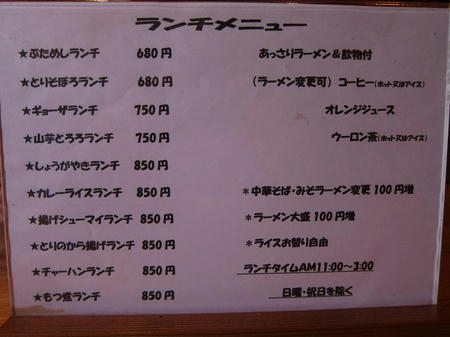 ランチメニュー
★ぶためしランチ 680円 あっさりラーメン＆飲物付
★とりそぼろランチ 680円 (ラーメン変更可) コーヒー(ホット又はアイス)
★ギョーザランチ 750円 オレンジジュース
★山芋とろろランチ 750円 ウーロン茶(ホット又はアイス)
★しょうがやきランチ 850円
★カレーライスランチ 850円 ＊中華そば・みそラーメン変更100円増
★揚げシューマイランチ 850円 ＊ラーメン大盛100円増
★とりのから揚げランチ 850円 ＊ライスお替り自由
★チャーハンランチ 850円 ランチタイムAM11:00～3:00
★もつ煮ランチ 850円 日曜・祝日を除く